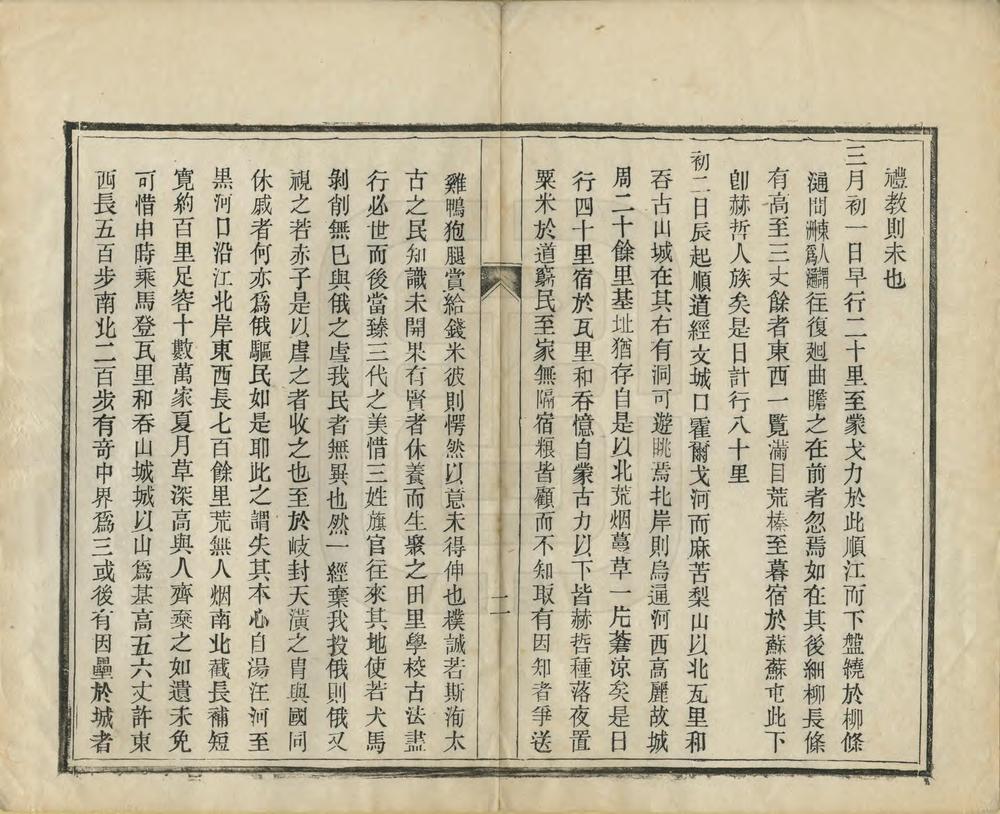 禮教則未也
三月初一日早行二十里至蒙戈力於此順江而下盤繞於柳條
通間東人謂洲爲通往復廻曲瞻之在前者忽焉如在其後細柳長條
有高至三丈餘者東西一覽滿目荒榛至暮宿於蘇蘇屯此下
卽赫哲人族矣是日計行八十里
初二日辰起順道經文城口霍爾戈河而麻苦梨山以北瓦里和
吞古山城在其右有洞可遊眺焉北岸則烏通河西高麗故城
周二十餘里基址猶存自是以北荒烟蔓草一片蒼涼矣是日
行四十里宿於瓦里和吞憶自蒙古力以下皆赫哲種落夜置
粟米於道竊民至家無隔宿粮皆顧而不知取有因知者爭送
二
雞鴨狍腿賞給錢米彼則愕然以意未得伸也樸誠若斯洵太
古之民知識未開果有賢者休養而生聚之田里學校古法盡
行必世而後當臻三代之美惜三姓旗官往來其地使若犬馬
剝削無已與俄之虐我民者無異也然一經棄我投俄則俄又
視之若赤子是以虐之者收之也至於岐封天潢之胄與國同
休戚者何亦爲俄驅民如是耶此之謂失其本心自湯汪河至
黑河口沿江北岸東西長七百餘里荒無人烟南北截長補短
寬約百里足容十數萬家夏月草深高與人齊棄之如遺未免
可惜申時乘馬登瓦里和吞山城城以山爲基高五六丈許東
西長五百步南北二百步有奇中界爲三或後有因壘於城者